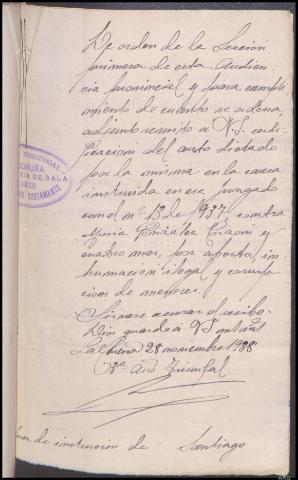 De orden de la Sección
primera de esta Audien-
cia provincial y para cumpli-
miento de cuanto se ordena
adjunto remito a V.S. certi-
ficacion del auto dictado
por la misma en la causa
instruida en ese Juzgado
con el nº 13 de 1937, contra
Maria Gonzalez y
cuatro mas, por aborto, in-
humacion ilegal y corrup-
cion de menores.
Sirvase acusar el recibo.
Dios guarde a V.S. m
La Coruña 28 noviembre 1938
3er Año Triunfal
de instruccion de Santiago
TERRITORIAL
CORUÑA
RIA DE SALA
BUSTAMANTE